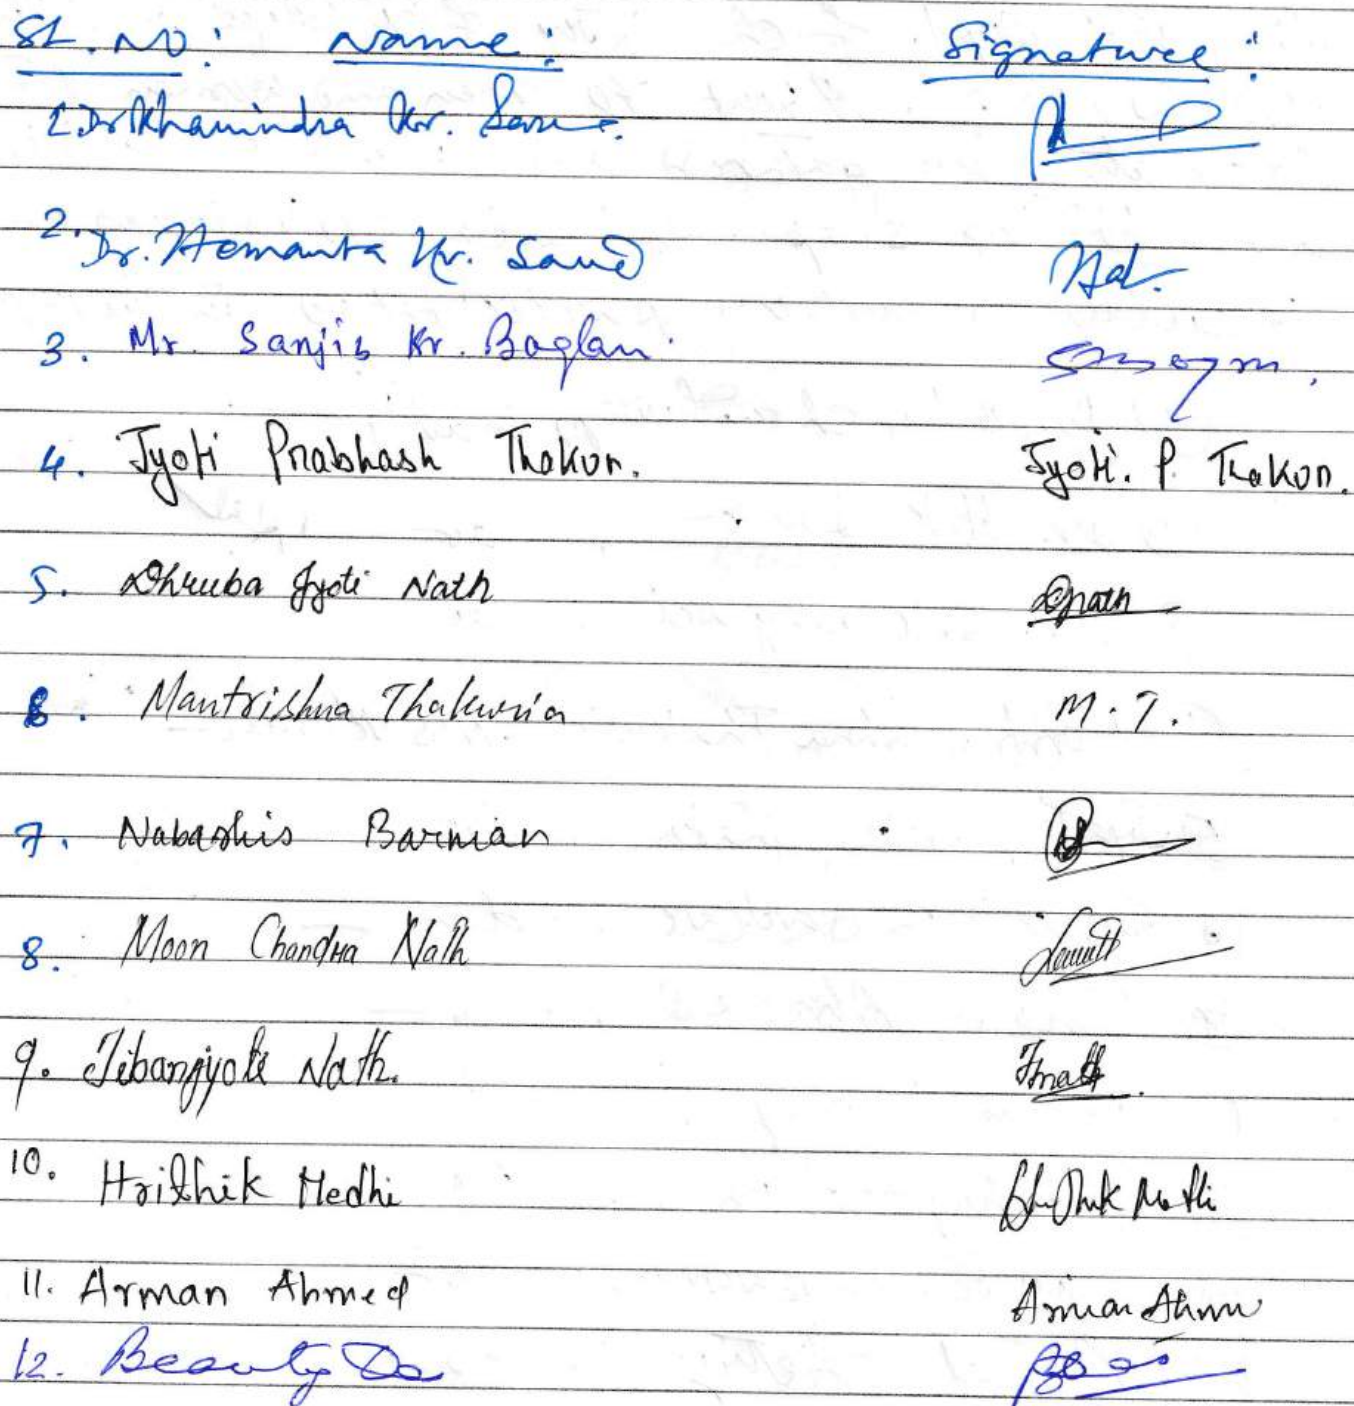 SL. NO: Name: Signature:
1. Dr Khanindra Kr.
2. Dr. Hemanta Kr.
3. Mr. Sanjib Kr.
4. Jyoti Prabhash Thakur. Jyoti. P. Thakur.
5. Dhruba Jyoti Nath Dnath
6. Mantrishna Thakuria M.T.
7. Nabashis Barman
8. Moon Chandra Nath
9. Jibanjyoti Nath. Jnath
10. Hrithik Medhi
11. Arman Ahmed Arman
12. Beauty